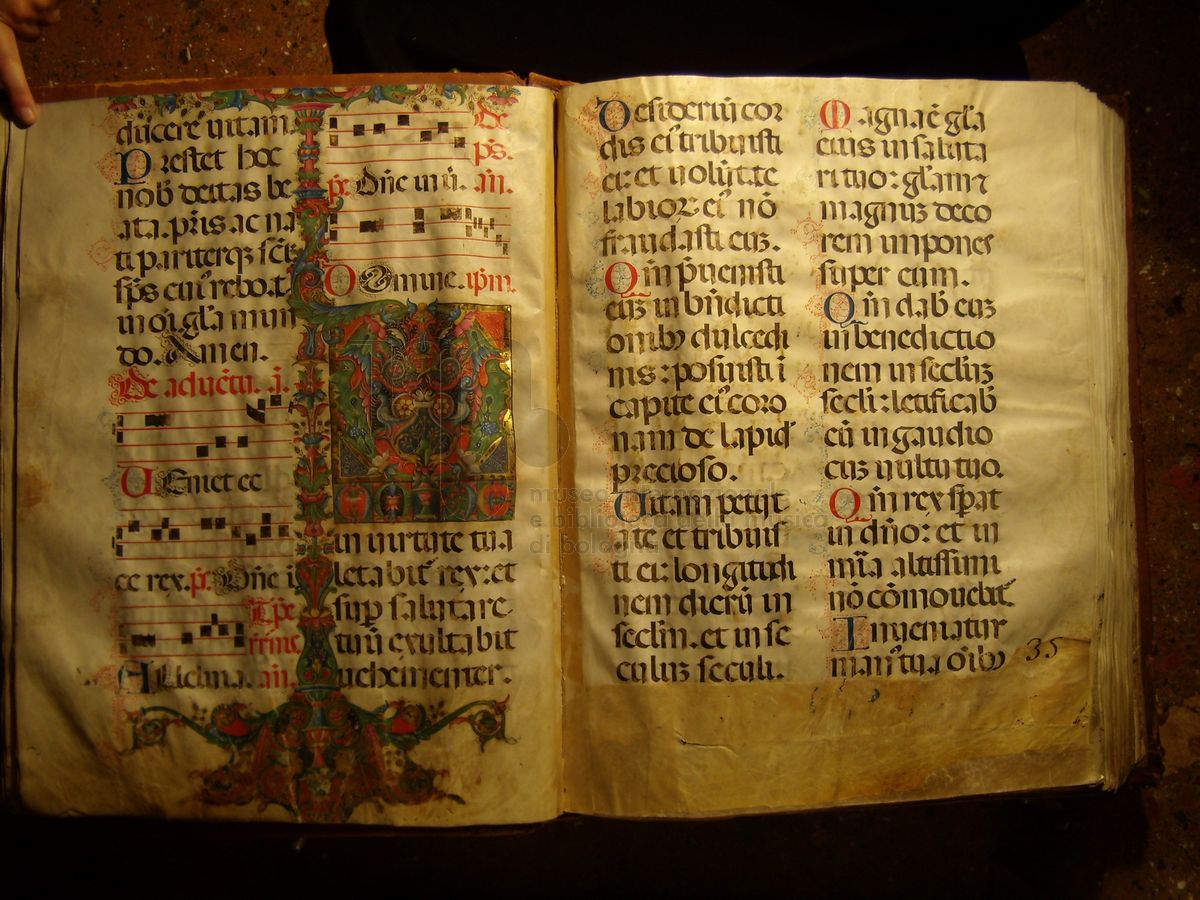 ducere vitam.
Prestet hoc
nob̄ deitas be
ata. pr̄is ac na
ti pariterqȝ sc̄i
sp̄s cui' rebo.t.
in oi gl̄a mun
do. Amen.
De aduētu. i.
Ueniet ec
ce rex. p̄. Dn̄e i
Tp̄e
Alleluia. an̄.
De
ps.
p̄. Dn̄e in ū. an̄.
Domine. ip̄m.
in uirtute tua
letabit' rex: et
sup̄ salutare
tuū exultabit
uehementer.
Desideriū cor
dis ei' tribuisti
ei: et uolūtate
labioꝝ ei' nō
fraudasti eū.
Qm̄ p̄uenisti
eū in bn̄dicti
onibȝ dulcedi
nis: posuisti ī
capite ei' coro
nam de lapid'
precioso.
Uitam petijt
a te et tribuis
ti ei: longitudi
nem dierū in
seclm̄. et in se
culū seculi.
Magna ē gl̄a
eius in saluta
ri tuo: gl̄am ⁊
magnū deco
rem impones
super eum.
Qm̄ dab' eū
in benedictio
nem in seclū
secli: letificab'
eū in gaudio
cū uultu tuo.
Qm̄ rex sp̄at
in dn̄o: et in
mīa altissimi
nō cōmouebit'.
Inueniatur
man' tua oībȝ
35
museo
e biblioteca della musica
di bologna